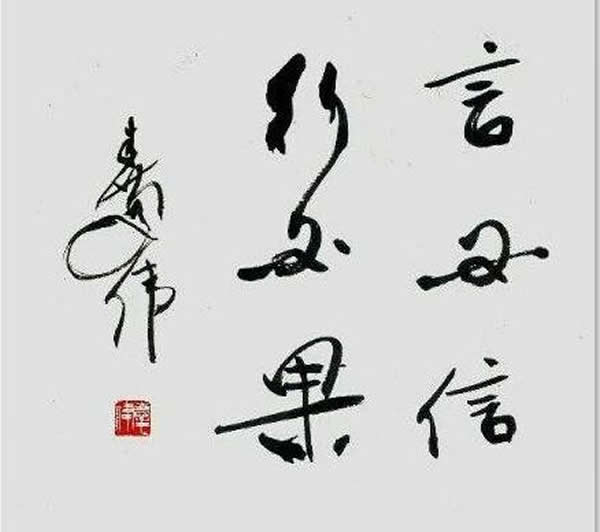 言必信
行必果
伟